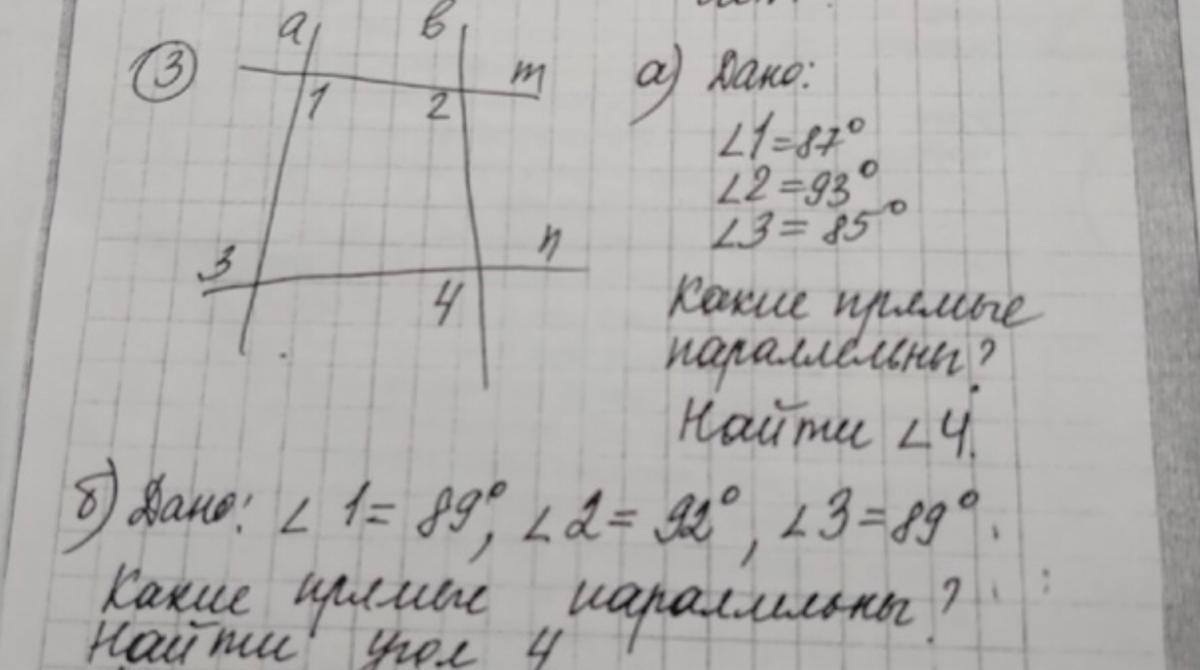 3
a
в
m
1
2
3
n
4
а) Дано:
∠1=87°
∠2=93°
∠3=85°
Какие прямые
параллельны?
Найти ∠4.
б) Дано: ∠1=89°, ∠2=92°, ∠3=89°.
Какие прямые параллельны?
Найти угол 4